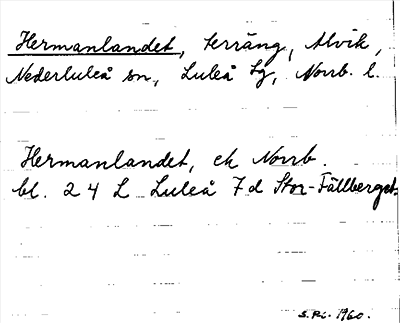 Hermanlandet, terräng, Alvik,
Nederluleå sn, Luleå tg, Norrb. l.
Hermanlandet, ek Norrb.
bl. 24 L Luleå 7d Stor-Fällberget.
S.Ri. 1960.